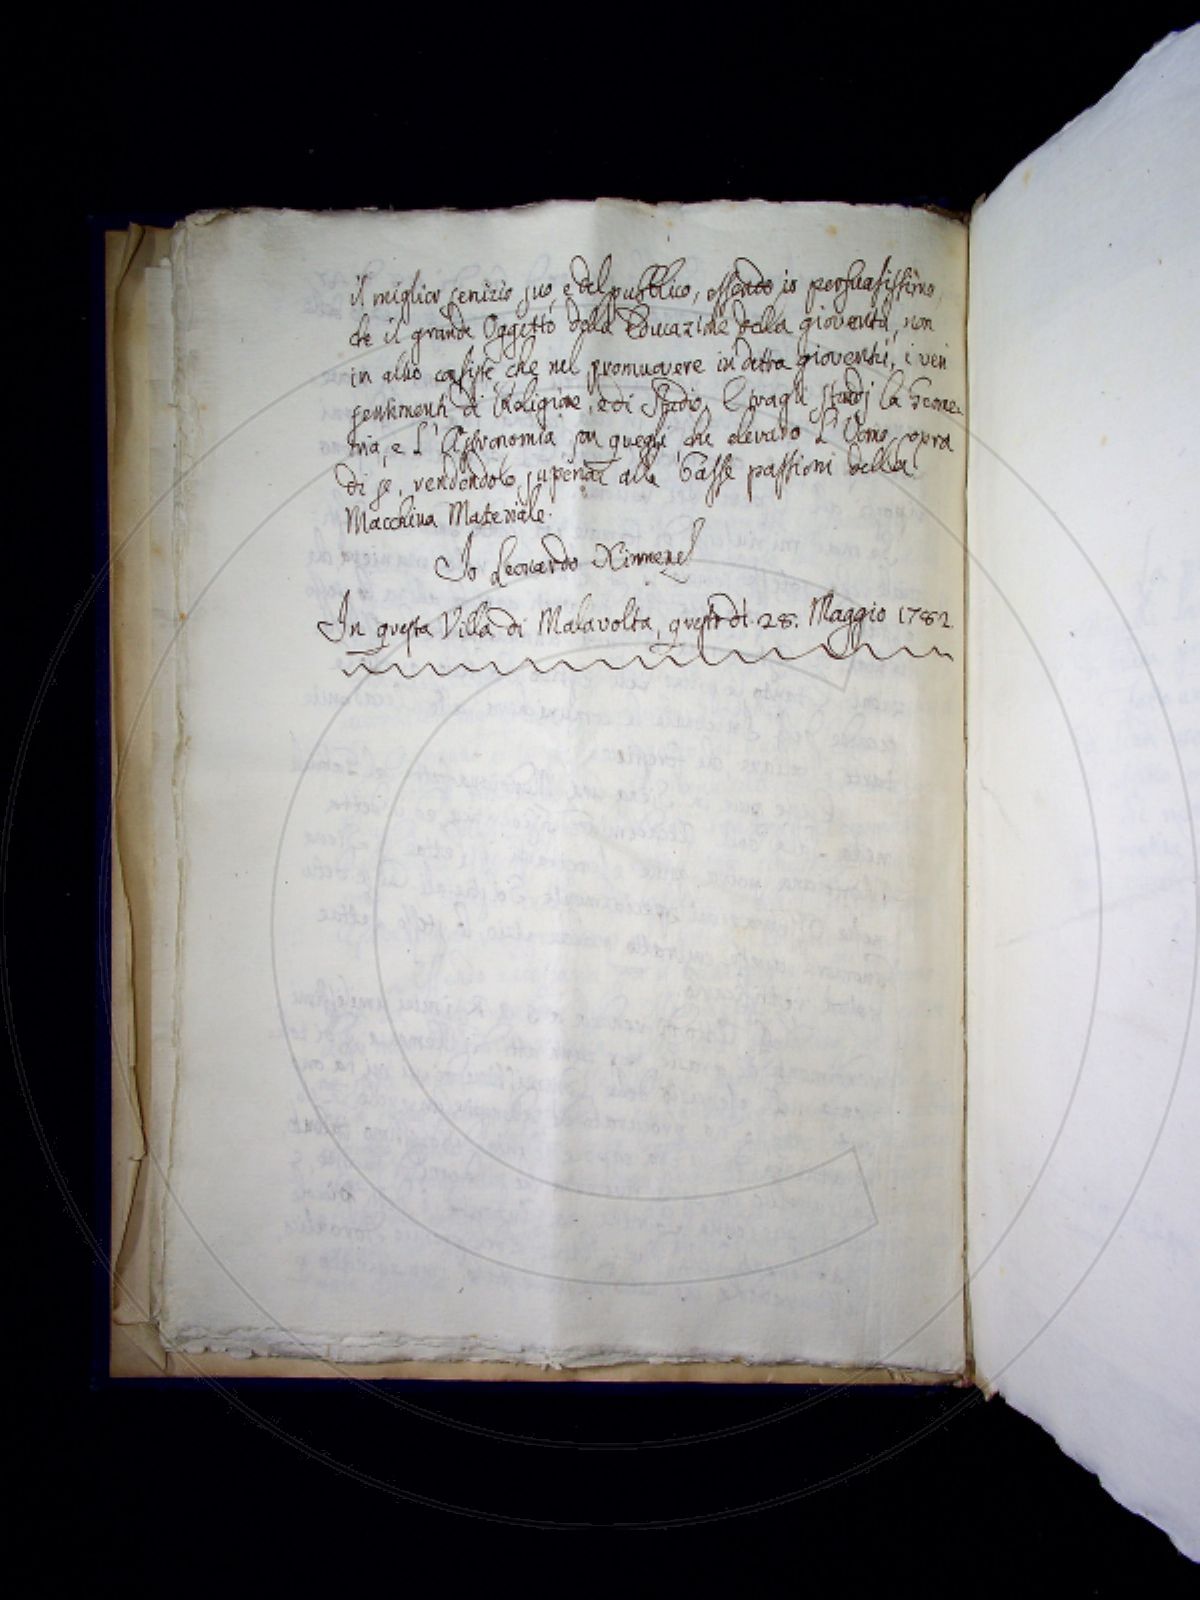 il miglior servizio suo, e del pubblico, essendo io persuasissimo,
che il grande Oggetto della Educazione della gioventù, non
in altro consiste che nel promuovere in detta gioventù, i veri
sentimenti di Religione, e di Studio, e tragli studj la Geome-
tria, e l'Astronomia son quegli, che elevano l'Uomo sopra
di se, rendendolo superior alle basse passioni della
Macchina Materiale.
Io Leonardo Ximenes
In questa Villa di Malavolta, questo dì 28. Maggio 1782.